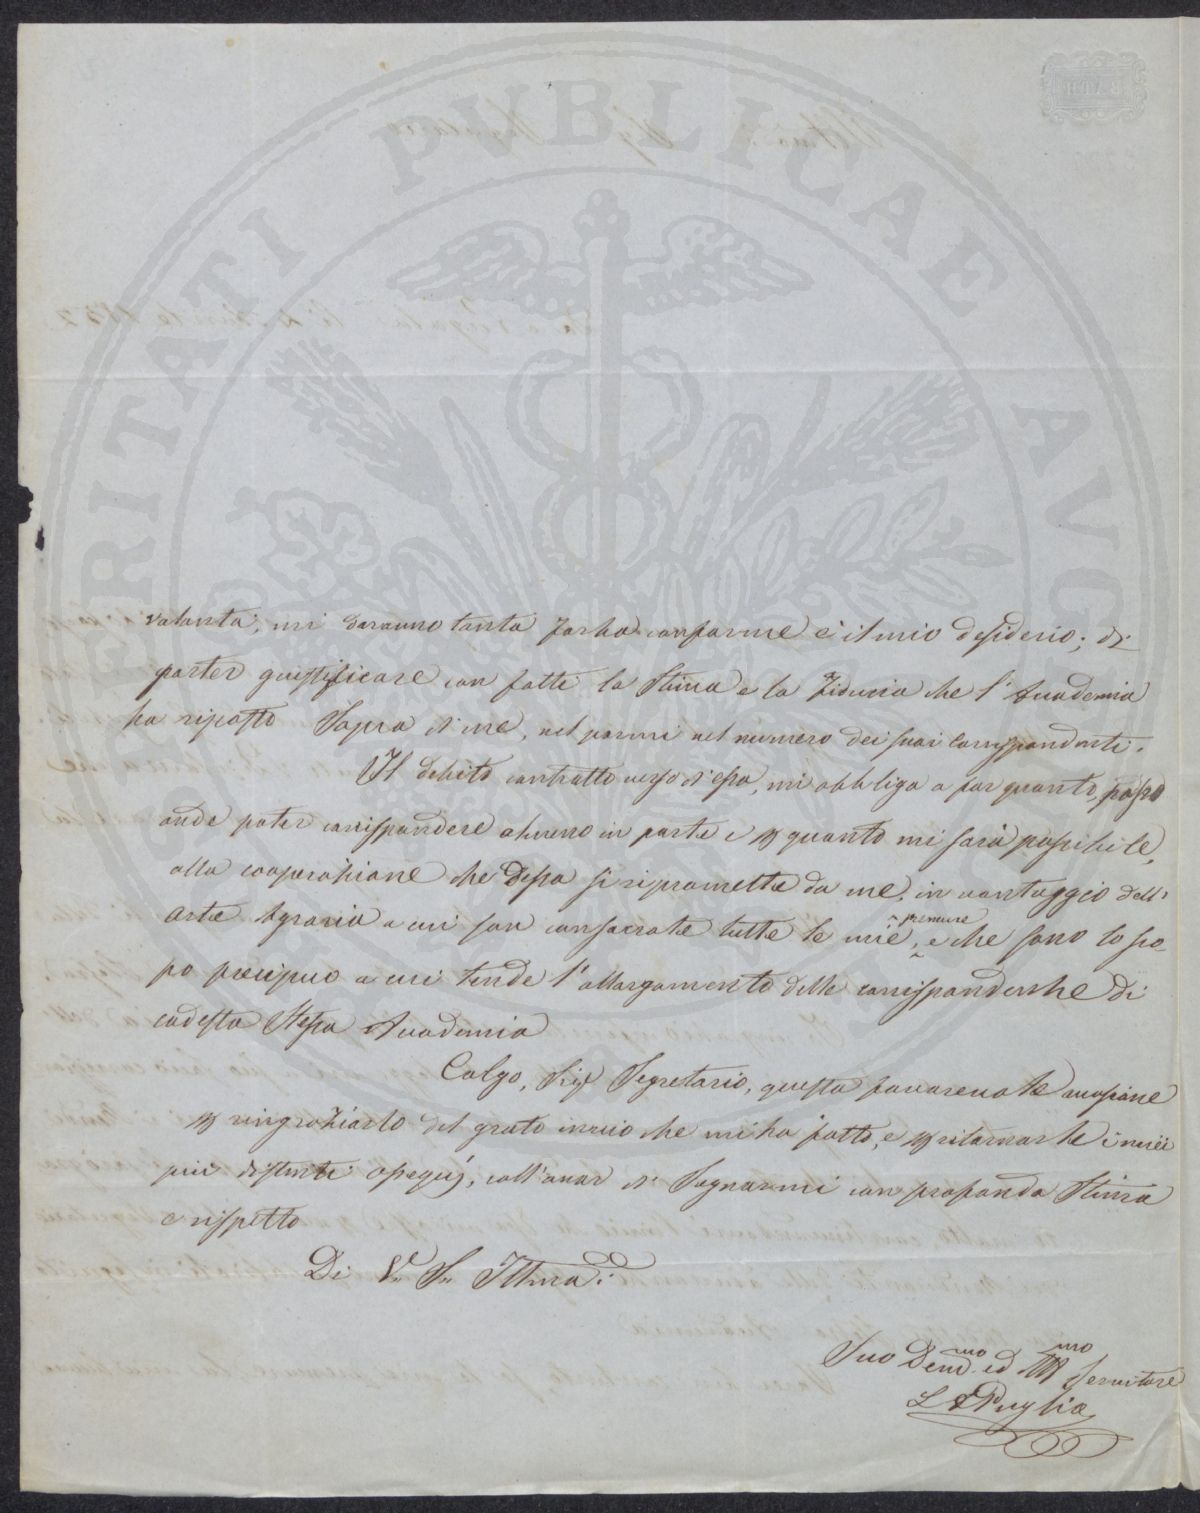 PROSPERITATI PVBLICAE AVGENDAE
BATH
volontà, mi daranno tanta forza conforme è il mio desiderio; di
poter giustificare con fatti la stima e la fiducia che l'Accademia
ha riposto sopra di me, nel pormi nel numero dei suoi Corrispondenti.
Il debito contratto verso d'essa, mi obbliga a far quanto posso
onde poter corrispondere almeno in parte e per quanto mi sarà possibile,
alla cooperazione che dessa si ripromette da me, in vantaggio dell'
arte Agraria a cui son consacrate tutte le mie premure, e che sono lo sco-
po precipuo a cui tende l'allargamento delle corrispondenze di
codesta Stessa Accademia
Colgo, Sigr Segretario, questa favorevole occasione
per ringraziarlo del grato invio che mi ha fatto, e per ritornarle i miei
più distinti ossequj, coll'onor di Segnarmi con profonda Stima
e rispetto
Di Va Sa Illma
Suo Devmo ed mo Servitore
L Puglia